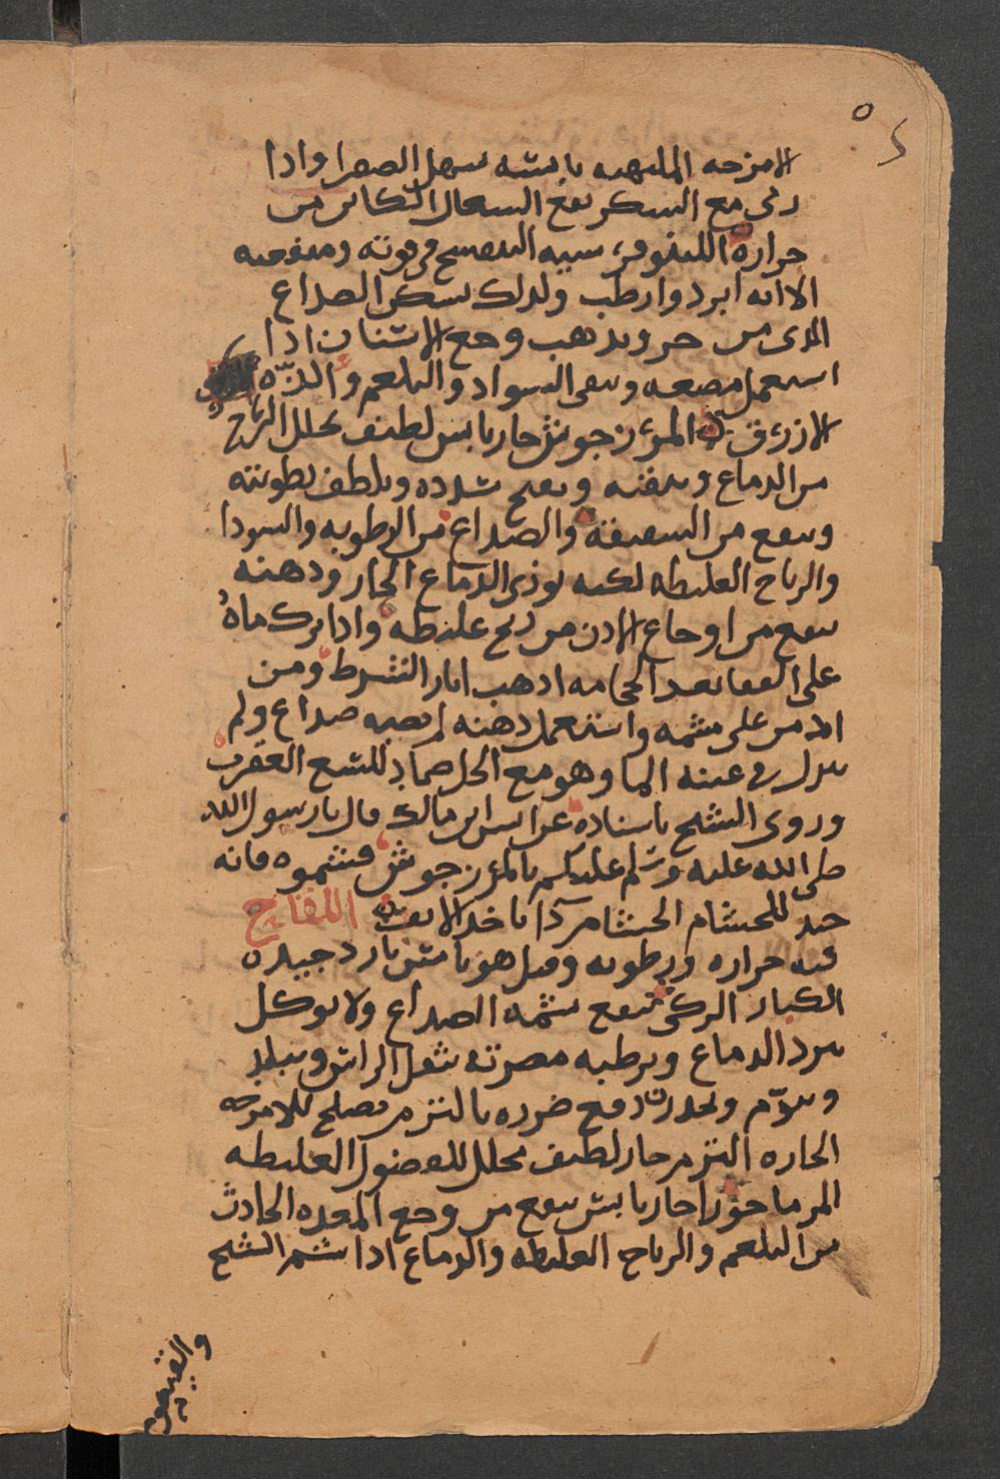 ٥
الامزجه الملتهبه يابسه يسهل الصفرا واذا
ربى مع السكر نفع السعال الكاين من
حرارة اللينوفر شبيه البنفسج فى قوته ومنفعته
الا انه ابرد وارطب ولذلك يسكن الصداع
الذى من حر ويذهب وجع الاسنان اذا
استعمل مضمضه وينقى السواد والبلغم
الازرق المرزجوش حار يابس لطيف يحلل الرياح
من الدماغ وينقيه ويفتح سدده ويلطف رطوبته
وينفع من الشقيقة والصداع من الرطوبه والسودا
والرياح الغليظه لكنه يوذى الدماغ الحار ودهنه
ينفع من اوجاع الاذن من ريح غليظه واذا ترك ماه
على القفا بعد الحجامه اذهب اثار الشرط ومن
ادمن على شمه واستعمل دهنه لم يصبه صداع ولم
ينزل فى عينه الما وهو مع الخل ضماد للسع العقرب
وروى الشيخ باسناده عن انس ابن مالك قال يا رسول الله
صلى الله عليه وسلم عليكم بالمرزجوش فشموه فانه
جيد للخشام الخشام دا ياخذ الانف اللفاح
فيه حراره ورطوبه وقيل هو يابس بارد جيده
الكبار الزكى ينفع شمه الصداع ولا يوكل
يبرد الدماغ ويرطبه مضرته يثقل الراس ويبلد
وينوّم ويخدر دفع ضرره بالنرجس يصلح للامزجه
الحاره حار لطيف محلل للفضول الغليظه
المرماحوز حار يابس ينفع من وجع المعده الحادث
من البلغم والرياح الغليظه والدماغ اذا شم الشيح
والقيصوم